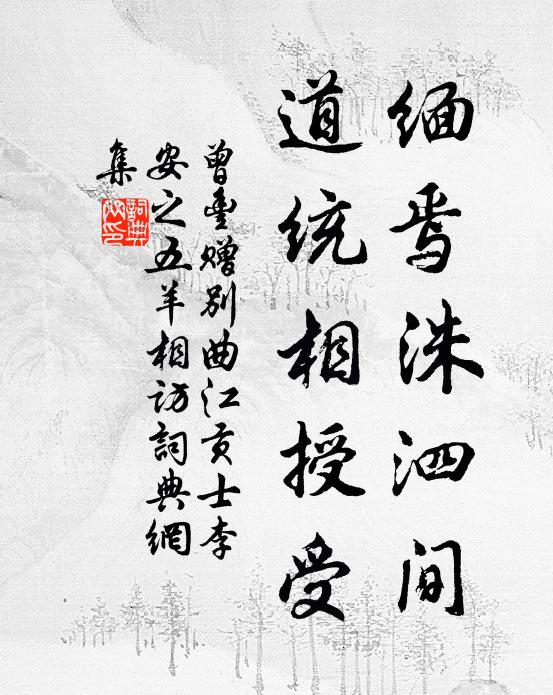 缅焉洙泗间
道统相授受
曾豊赠别曲江贡士李
安之五羊相访詞典網
集